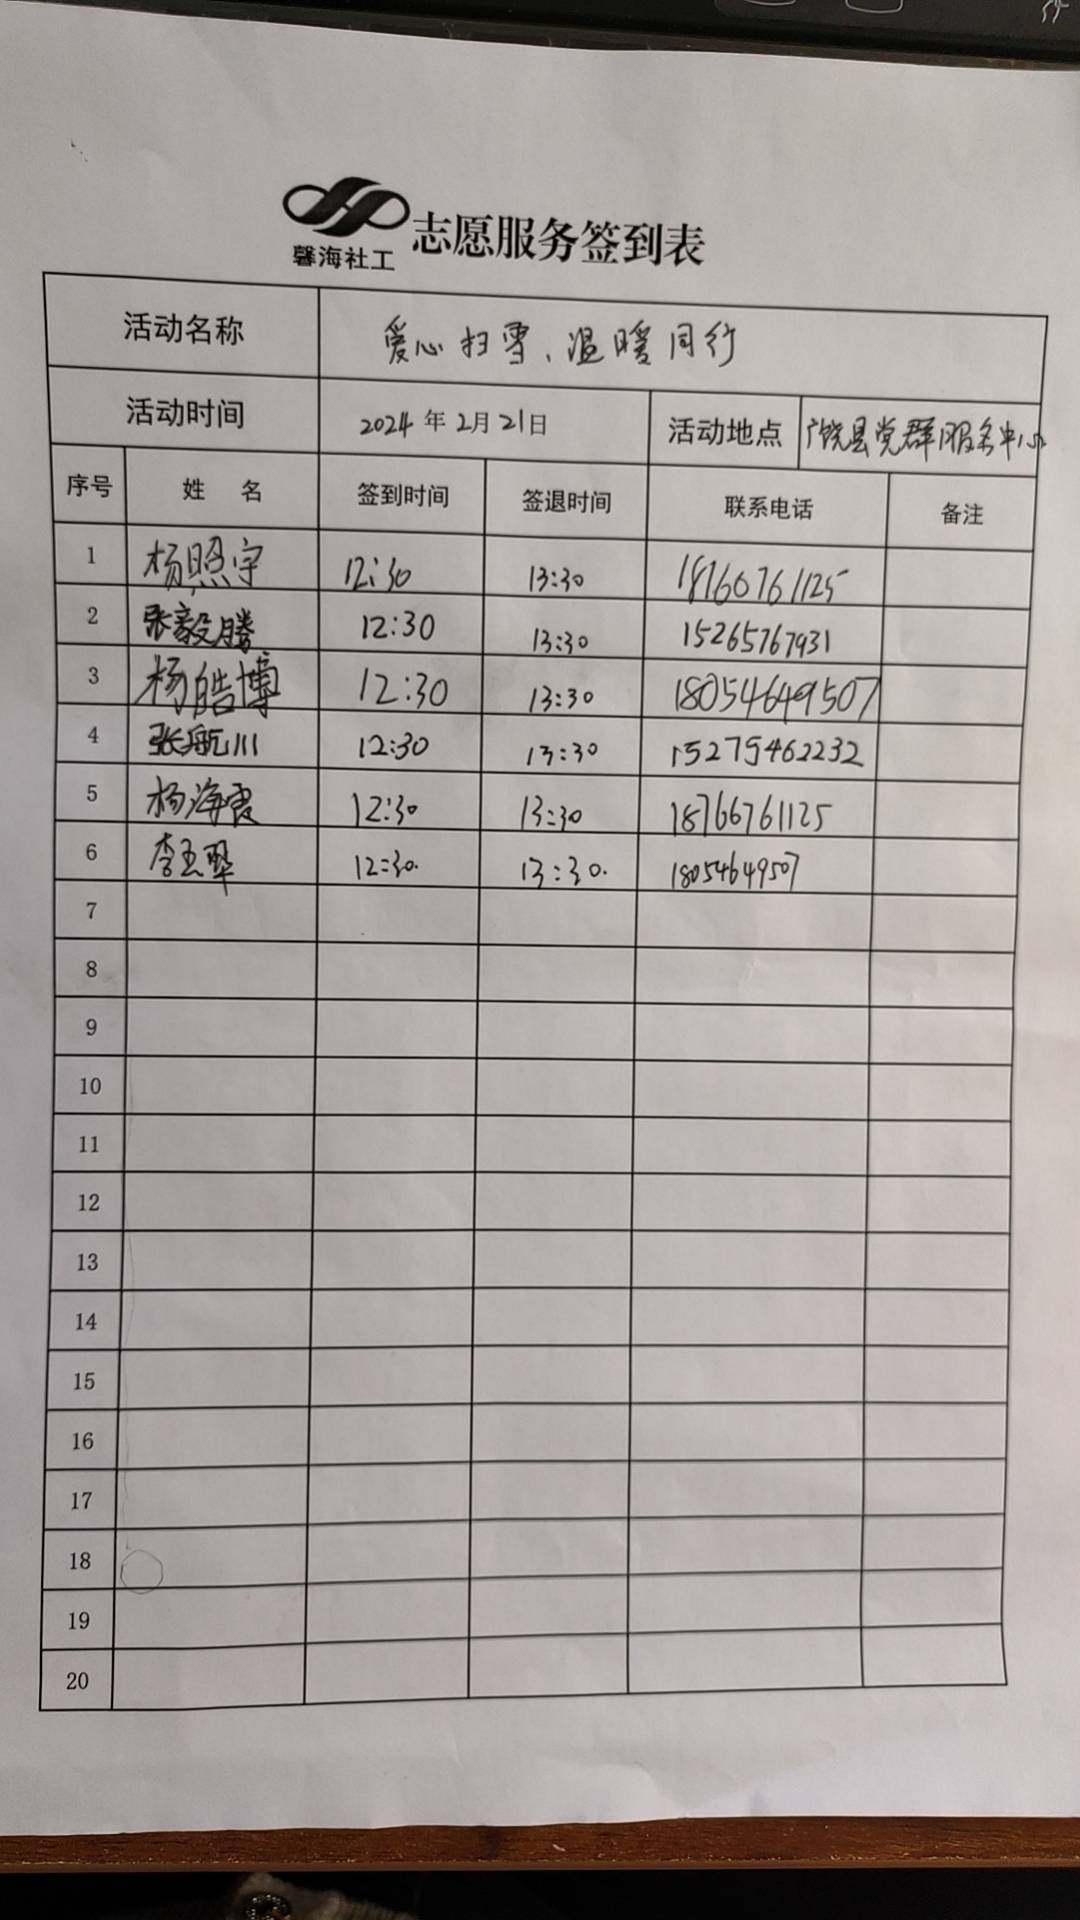 馨海社工 志愿服务签到表
活动名称 爱心扫雪、温暖同行
活动时间 2024年2月21日 活动地点 广饶县党群服务中心
序号 姓 名 签到时间 签退时间 联系电话 备注
1 杨照宇 12:30 13:30 18760761125
2 张毅腾 12:30 13:30 15265767931
3 杨皓博 12:30 13:30 18054649507
4 张航川 12:30 13:30 15275462232
5 杨海霞 12:30 13:30 18766761125
6 李玉翠 12:30. 13:30. 18054649507
7
8
9
10
11
12
13
14
15
16
17
18
19
20